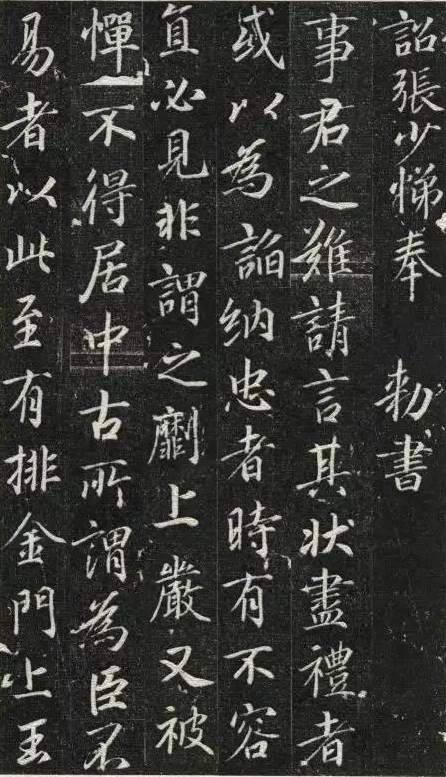 詔張少悌奉 勑書
事君之難請言其狀盡禮者
或以為諂納忠者時有不容
直必見非謂之劘上嚴又被
憚不得居中古所謂為臣不
易者以此至有排金門上玉